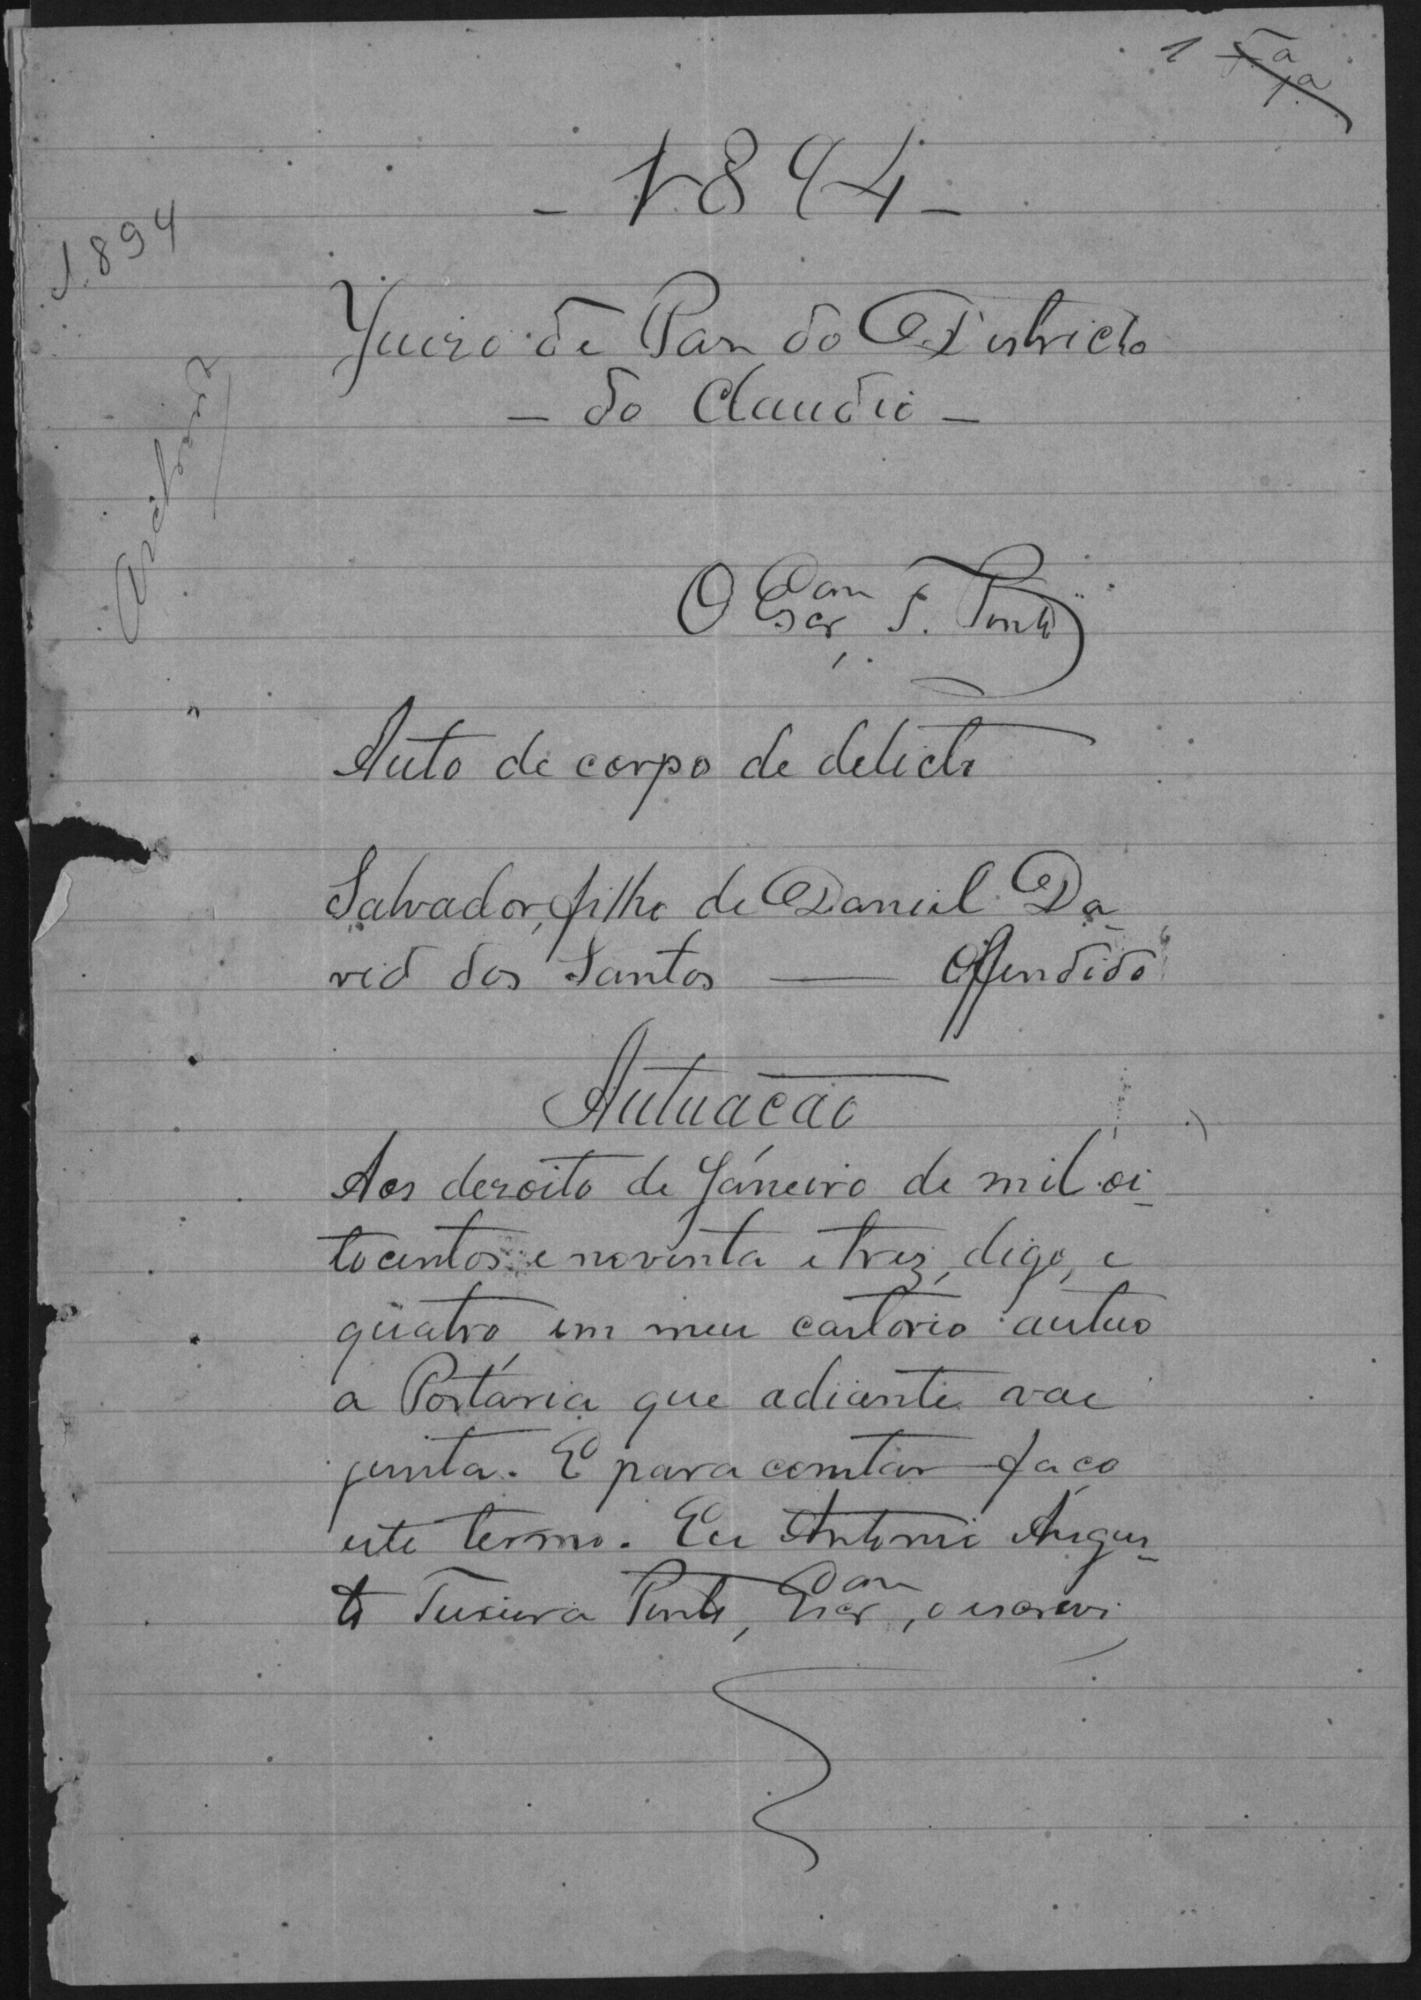 1
- 1894 -
1894
Juizo de Paz do Districto
- do Claudio -
O Escr.am T. Pinto
Auto de corpo de delicto
Salvador, filho de Daniel Da-
vid dos Santos — Offendido
Autuacão
Aos dezoito de Janeiro de mil oi-
tocentos e noventa e trez, digo, e
quatro em meu cartorio autuo
a Portaria que adiante vae
junta. E para constar faço
este termo. Eu Antonio Augus-
to Teixeira Pinto, Escr.am, o escrevi